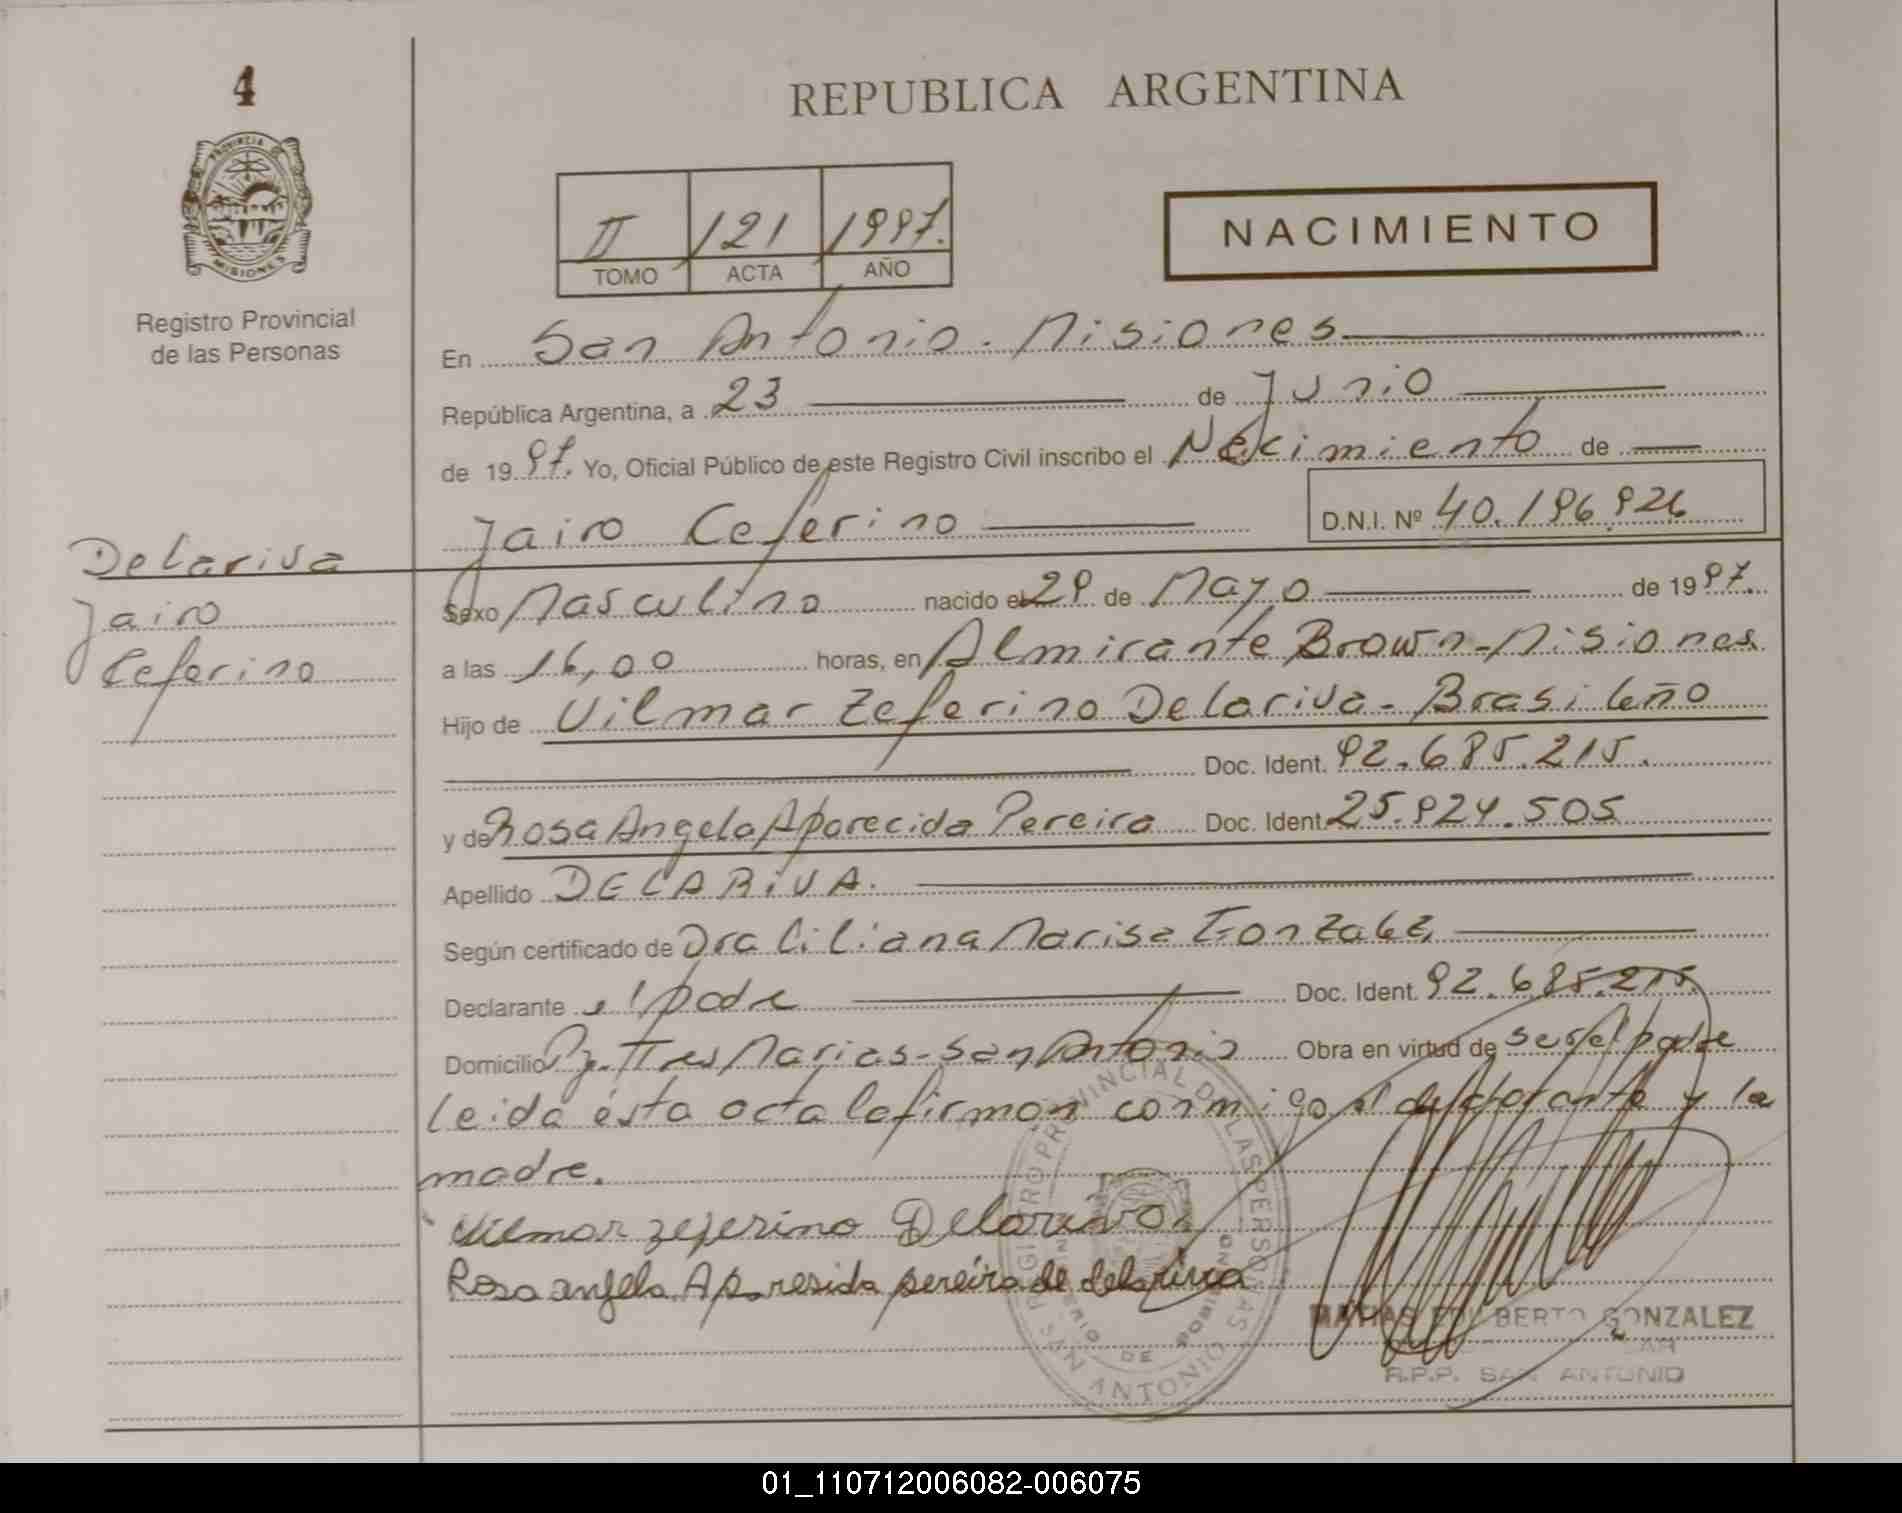 4
REPUBLICA ARGENTINA
PROVINCIA DE
MISIONES
Registro Provincial
de las Personas
II 121 1997.
TOMO ACTA AÑO
NACIMIENTO
En San Antonio - Misiones
República Argentina, a 23 de Junio
de 1997. Yo, Oficial Público de este Registro Civil inscribo el Nacimiento de
Jairo Ceferino D.N.I. Nº 40.196.926
Delariva
Jairo
Ceferino
Sexo Masculino nacido el 29 de Mayo de 1997.
a las 16,00 horas, en Almirante Brown - Misiones
Hijo de Vilmar Zeferino Delariva - Brasileño
Doc. Ident. 92.685.215.
y de Rosa Angela Aparecida Pereira Doc. Ident. 25.924.505
Apellido DELARIVA.
Según certificado de Dra Liliana Marisa Gonzalez,
Declarante el padre Doc. Ident. 92.685.215
Domicilio Pje. Tres Marias - San Antonio Obra en virtud de ser el padre
Leida ésta acta la firman conmigo el declarante y la
madre.
Vilmar zeferino Delariva
Rosa angela Aparesida pereira de delariva
REGISTRO PROVINCIAL DE LAS PERSONAS
SAN ANTONIO
MATIAS EDILBERTO GONZALEZ
R.P.P. SAN ANTONIO
01_110712006082-006075